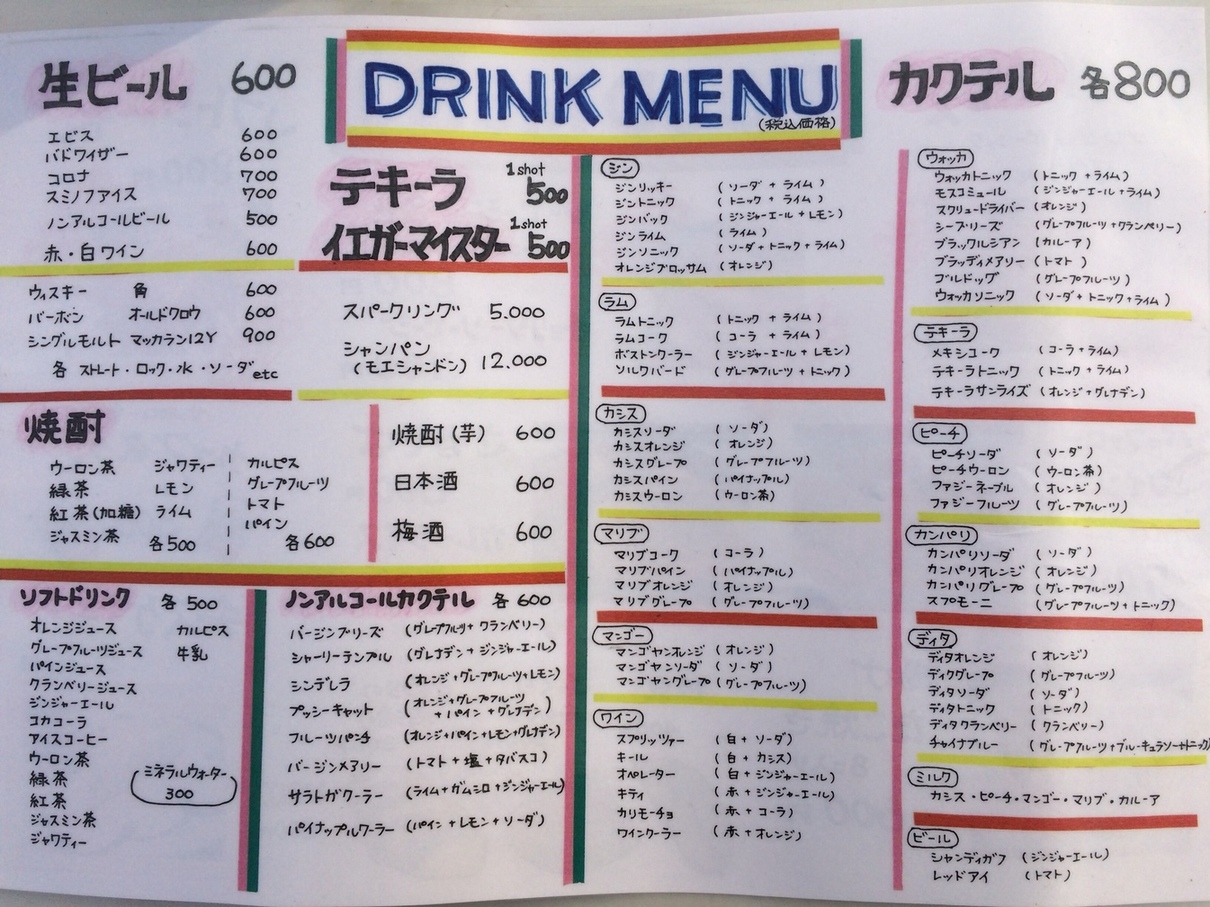 DRINK MENU
(税込価格)
生ビール 600
エビス 600
バドワイザー 600
コロナ 700
スミノフアイス 700
ノンアルコールビール 500
赤・白ワイン 600
ウィスキー 角 600
バーボン オールドクロウ 600
シングルモルト マッカラン12Y 900
各 ストレート・ロック・水・ソーダetc
テキーラ 1shot 500
イエガーマイスター 1shot 500
スパークリング 5.000
シャンパン
(モエシャンドン) 12.000
焼酎
ウーロン茶 ジャワティー
緑茶 レモン
紅茶(加糖) ライム
ジャスミン茶 各500
カルピス
グレープフルーツ
トマト
パイン
各600
焼酎(芋) 600
日本酒 600
梅酒 600
ソフトドリンク 各500
オレンジジュース カルピス
グレープフルーツジュース 牛乳
パインジュース
クランベリージュース
ジンジャーエール
コカコーラ
アイスコーヒー
ウーロン茶
緑茶
紅茶
ジャスミン茶
ジャワティー
ミネラルウォーター
300
ノンアルコールカクテル 各600
バージンブリーズ (グレープフルーツ+クランベリー)
シャーリーテンプル (グレナデン+ジンジャーエール)
シンデレラ (オレンジ+グレープフルーツ+レモン)
プッシーキャット (オレンジ+グレープフルーツ
+パイン+グレナデン)
フルーツパンチ (オレンジ+パイン+レモン+グレナデン)
バージンメアリー (トマト+塩+タバスコ)
サラトガクーラー (ライム+ガムシロ+ジンジャーエール)
パイナップルクーラー (パイン+レモン+ソーダ)
カクテル 各800
ジン
ジンリッキー (ソーダ+ライム)
ジントニック (トニック+ライム)
ジンバック (ジンジャーエール+レモン)
ジンライム (ライム)
ジンソニック (ソーダ+トニック+ライム)
オレンジブロッサム (オレンジ)
ラム
ラムトニック (トニック+ライム)
ラムコーク (コーラ+ライム)
ボストンクーラー (ジンジャーエール+レモン)
ソルクバード (グレープフルーツ+トニック)
カシス
カシスソーダ (ソーダ)
カシスオレンジ (オレンジ)
カシスグレープ (グレープフルーツ)
カシスパイン (パイナップル)
カシスウーロン (ウーロン茶)
マリブ
マリブコーク (コーラ)
マリブパイン (パイナップル)
マリブオレンジ (オレンジ)
マリブグレープ (グレープフルーツ)
マンゴー
マンゴヤンオレンジ (オレンジ)
マンゴヤンソーダ (ソーダ)
マンゴヤングレープ (グレープフルーツ)
ワイン
スプリッツァー (白+ソーダ)
キール (白+カシス)
オペレーター (白+ジンジャーエール)
キティ (赤+ジンジャーエール)
カリモーチョ (赤+コーラ)
ワインクーラー (赤+オレンジ)
ウォッカ
ウォッカトニック (トニック+ライム)
モスコミュール (ジンジャーエール+ライム)
スクリュードライバー (オレンジ)
シーブリーズ (グレープフルーツ+クランベリー)
ブラックルシアン (カルーア)
ブラッディメアリー (トマト)
ブルドッグ (グレープフルーツ)
ウォッカソニック (ソーダ+トニック+ライム)
テキーラ
メキシコーク (コーラ+ライム)
テキーラトニック (トニック+ライム)
テキーラサンライズ (オレンジ+グレナデン)
ピーチ
ピーチソーダ (ソーダ)
ピーチウーロン (ウーロン茶)
ファジーネーブル (オレンジ)
ファジーフルーツ (グレープフルーツ)
カンパリ
カンパリソーダ (ソーダ)
カンパリオレンジ (オレンジ)
カンパリグレープ (グレープフルーツ)
スプモーニ (グレープフルーツ+トニック)
ディタ
ディタオレンジ (オレンジ)
ディタグレープ (グレープフルーツ)
ディタソーダ (ソーダ)
ディタトニック (トニック)
ディタクランベリー (クランベリー)
チャイナブルー (グレープフルーツ+ブルーキュラソー+トニック)
ミルク
カシス・ピーチ・マンゴー・マリブ・カルーア
ビール
シャンディガフ (ジンジャーエール)
レッドアイ (トマト)